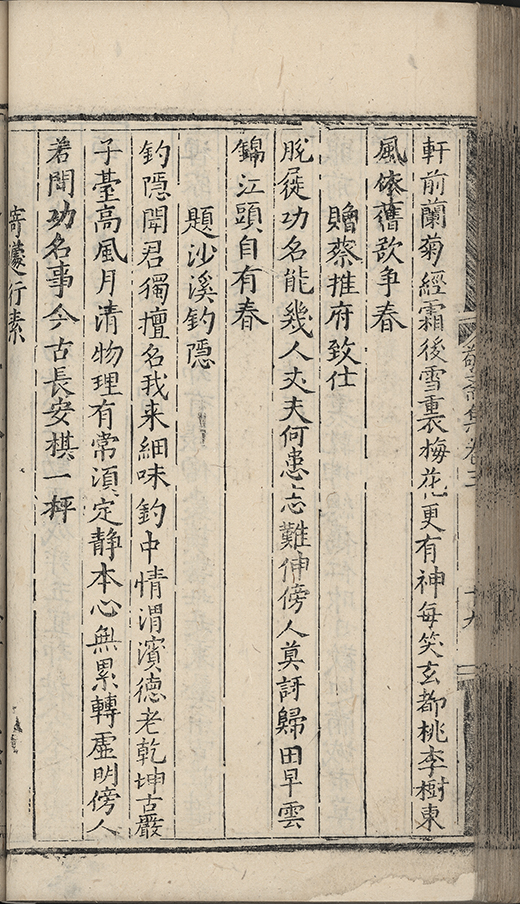 軒前蘭菊經霜後雪裏梅花更有神每笑玄都桃李樹東
風依舊歆爭春
贈蔡推府致仕
脫屣功名能幾人丈夫何患志難伸傍人莫訝歸田早雲
錦江頭自有春
題沙溪釣隱
釣隱聞君獨擅名我来細味釣中情渭濱德老乾坤古嚴
子臺高風月清物理有常湏定靜本心無累轉虛明傍人
若問功名事今古長安棋一枰
寄
行素
集卷三
十九